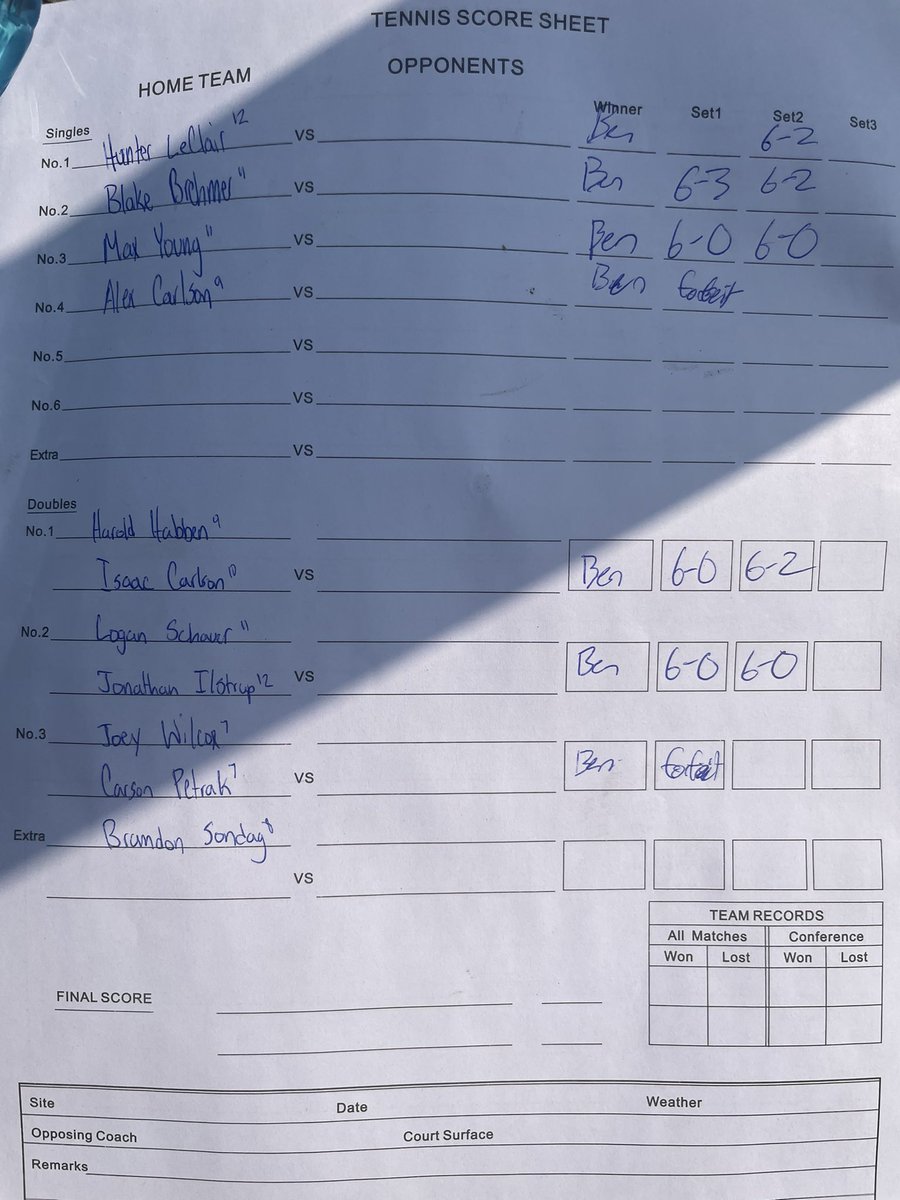 TENNIS SCORE SHEET
HOME TEAM OPPONENTS
Singles Winner Set1 Set2 Set3
No.1 Hunter LeClair 12 VS Ben 6-2
No.2 Blake Brehmer 11 VS Ben 6-3 6-2
No.3 Max Young 11 VS Ben 6-0 6-0
No.4 Alex Carlson 9 VS Ben forfeit
No.5 VS
No.6 VS
Extra VS
Doubles
No.1 Harold Habben 9
Isaac Carlson 10 VS Ben 6-0 6-2
No.2 Logan Schauer 11
Jonathan Ilstrup 12 VS Ben 6-0 6-0
No.3 Joey Wilcox 7
Carson Petrak 7 VS Ben forfeit
Extra Brandon Sonday 8
VS
TEAM RECORDS
All Matches Conference
Won Lost Won Lost
FINAL SCORE
Site Date Weather
Opposing Coach Court Surface
Remarks